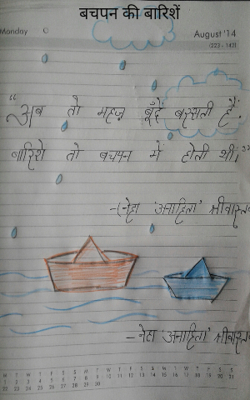 बचपन की बारिशें
Monday
August '14
(223-142)
"अब तो महज़ बूँदें बरसती हैं,
बारिशे तो बचपन में होती थी।"
-(नेहा 'अनाहिता' श्रीवास्तव
- नेहा 'अनाहिता' श्रीवास्तव